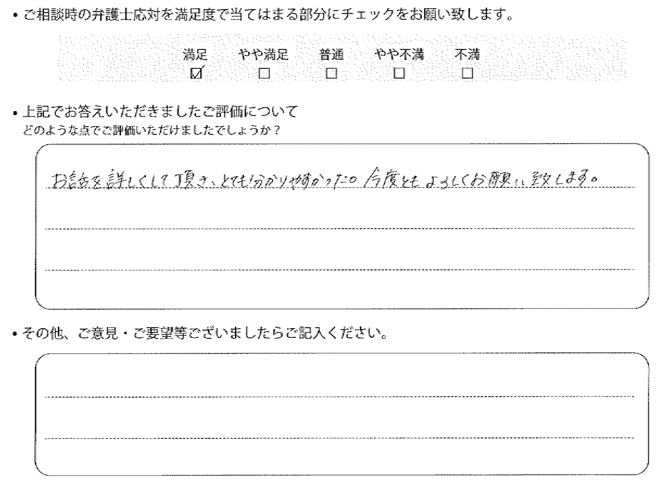 • ご相談時の弁護士応対を満足度で当てはまる部分にチェックをお願い致します。
満足 やや満足 普通 やや不満 不満
☑ □ □ □ □
• 上記でお答えいただきましたご評価について
どのような点でご評価いただけましたでしょうか？
お話を詳しくして頂き、とても分かりやすかった。今度ともよろしくお願い致します。
• その他、ご意見・ご要望等ございましたらご記入ください。